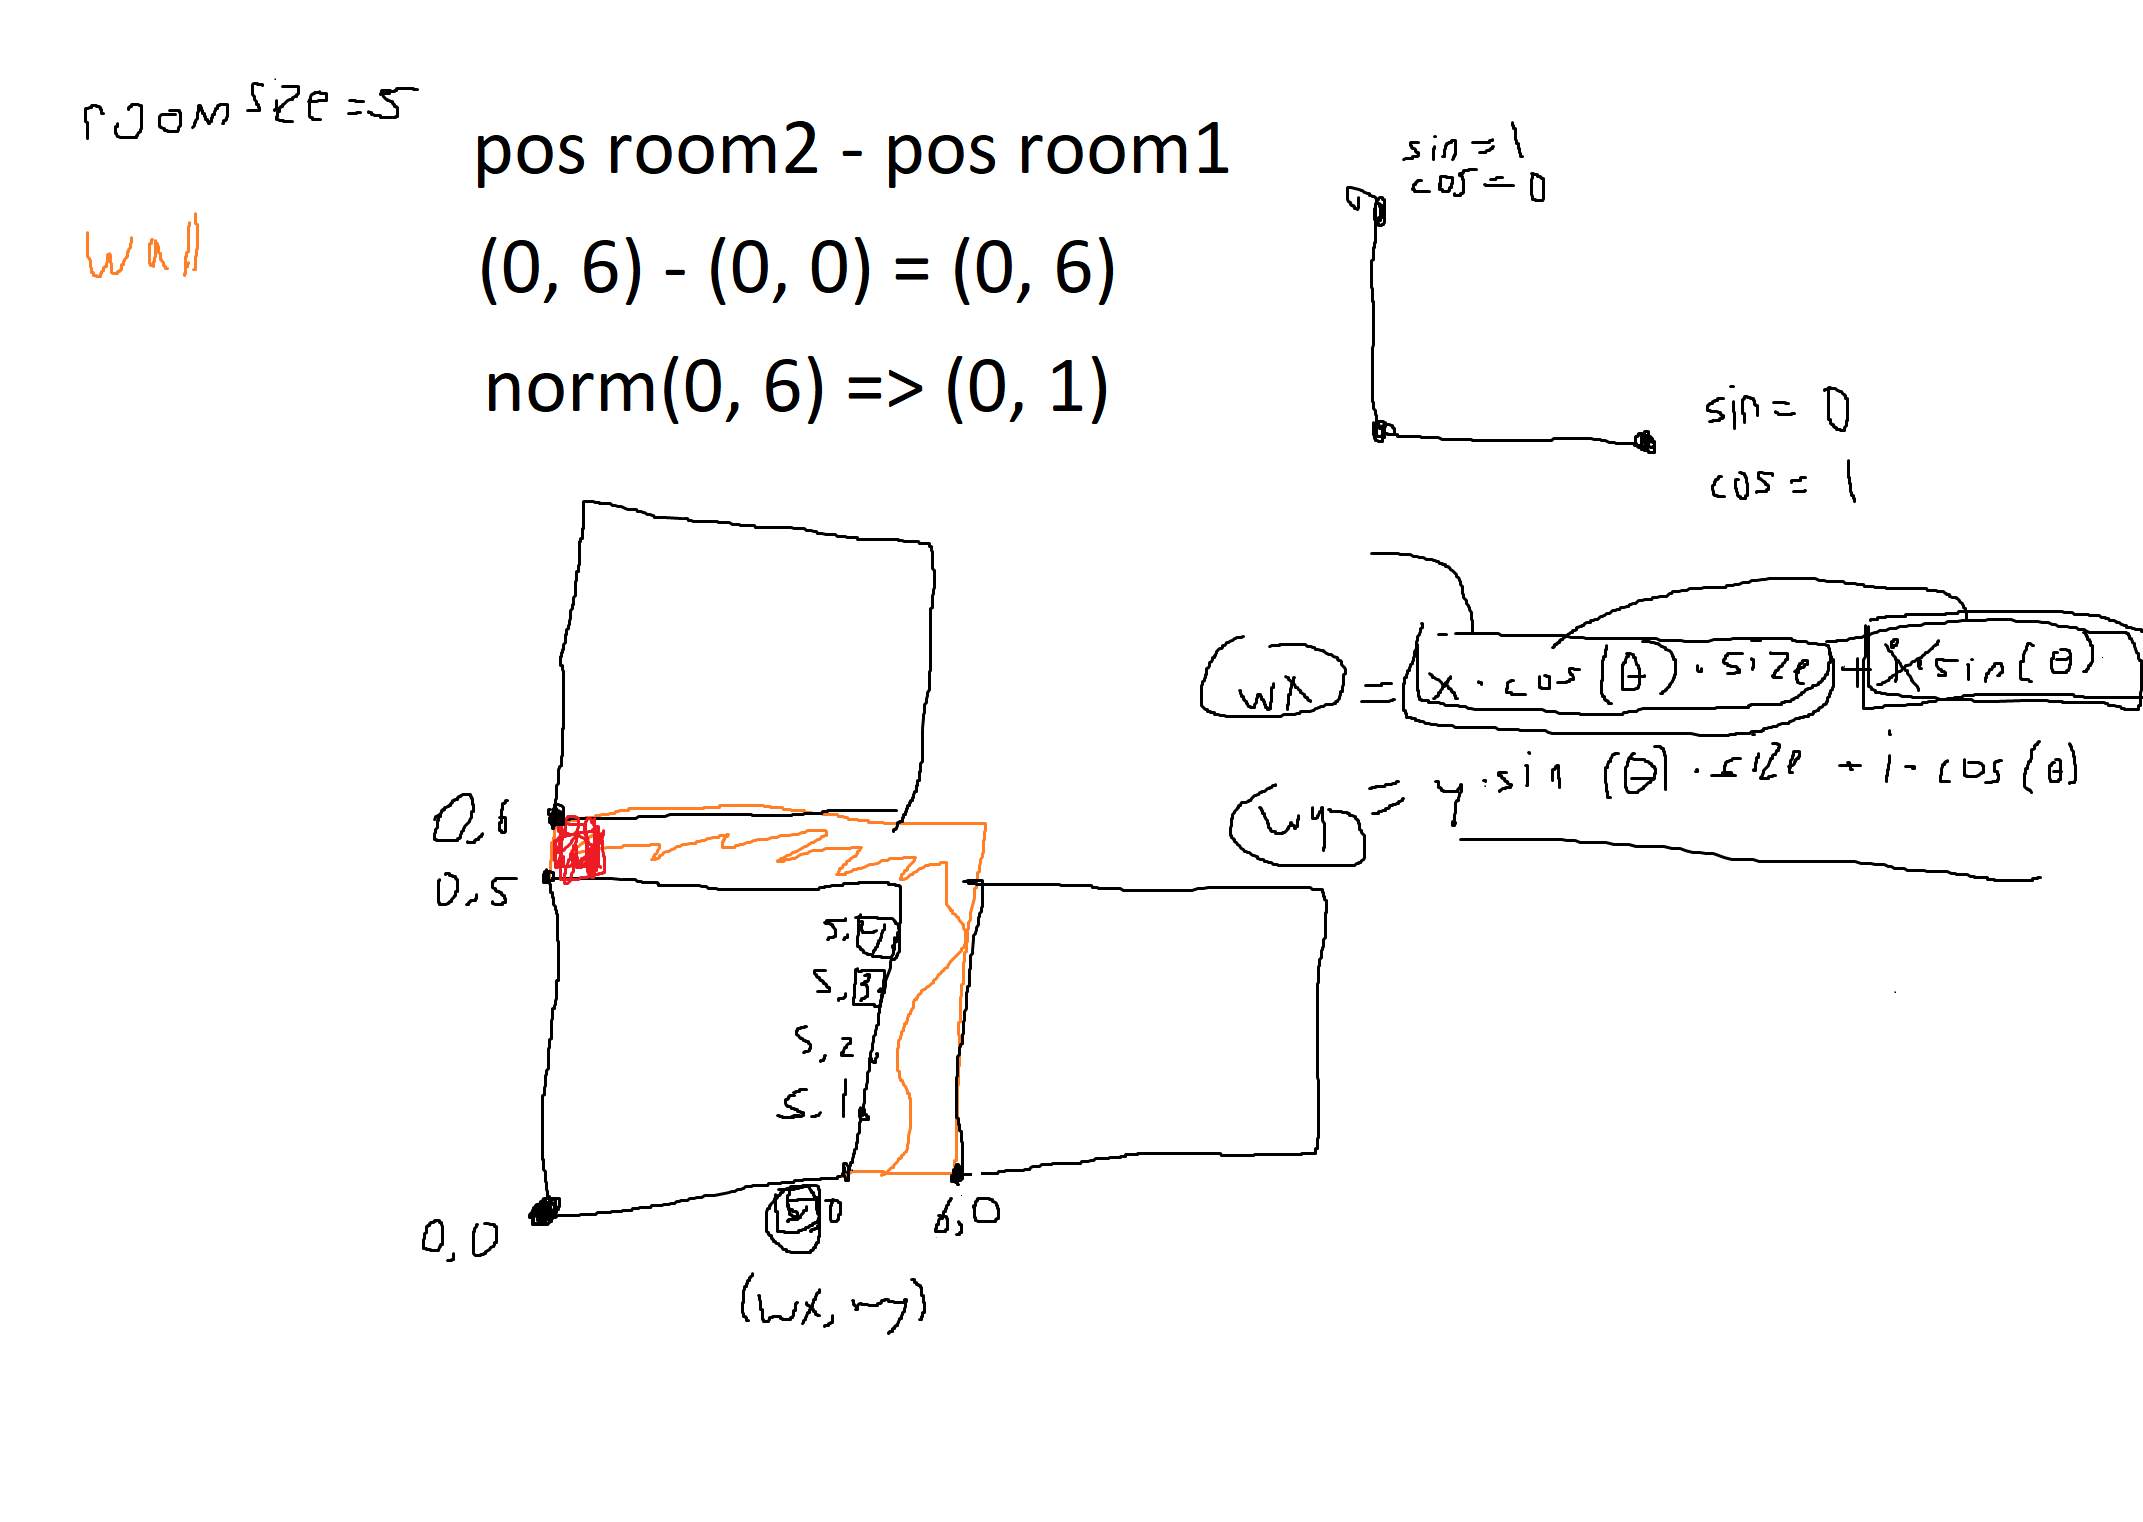 room size=5
pos room2 - pos room1
(0, 6) - (0, 0) = (0, 6)
norm(0, 6) => (0, 1)
wall
sin=1
cos=0
sin= 0
cos= 1
wx = x·cos(θ)·size + i·sin(θ)
wy = y·sin(θ)·size + i·cos(θ)
0,6
0,5
5,4
5,3
5,2
5,1
5,0
6,0
0,0
(wx, wy)